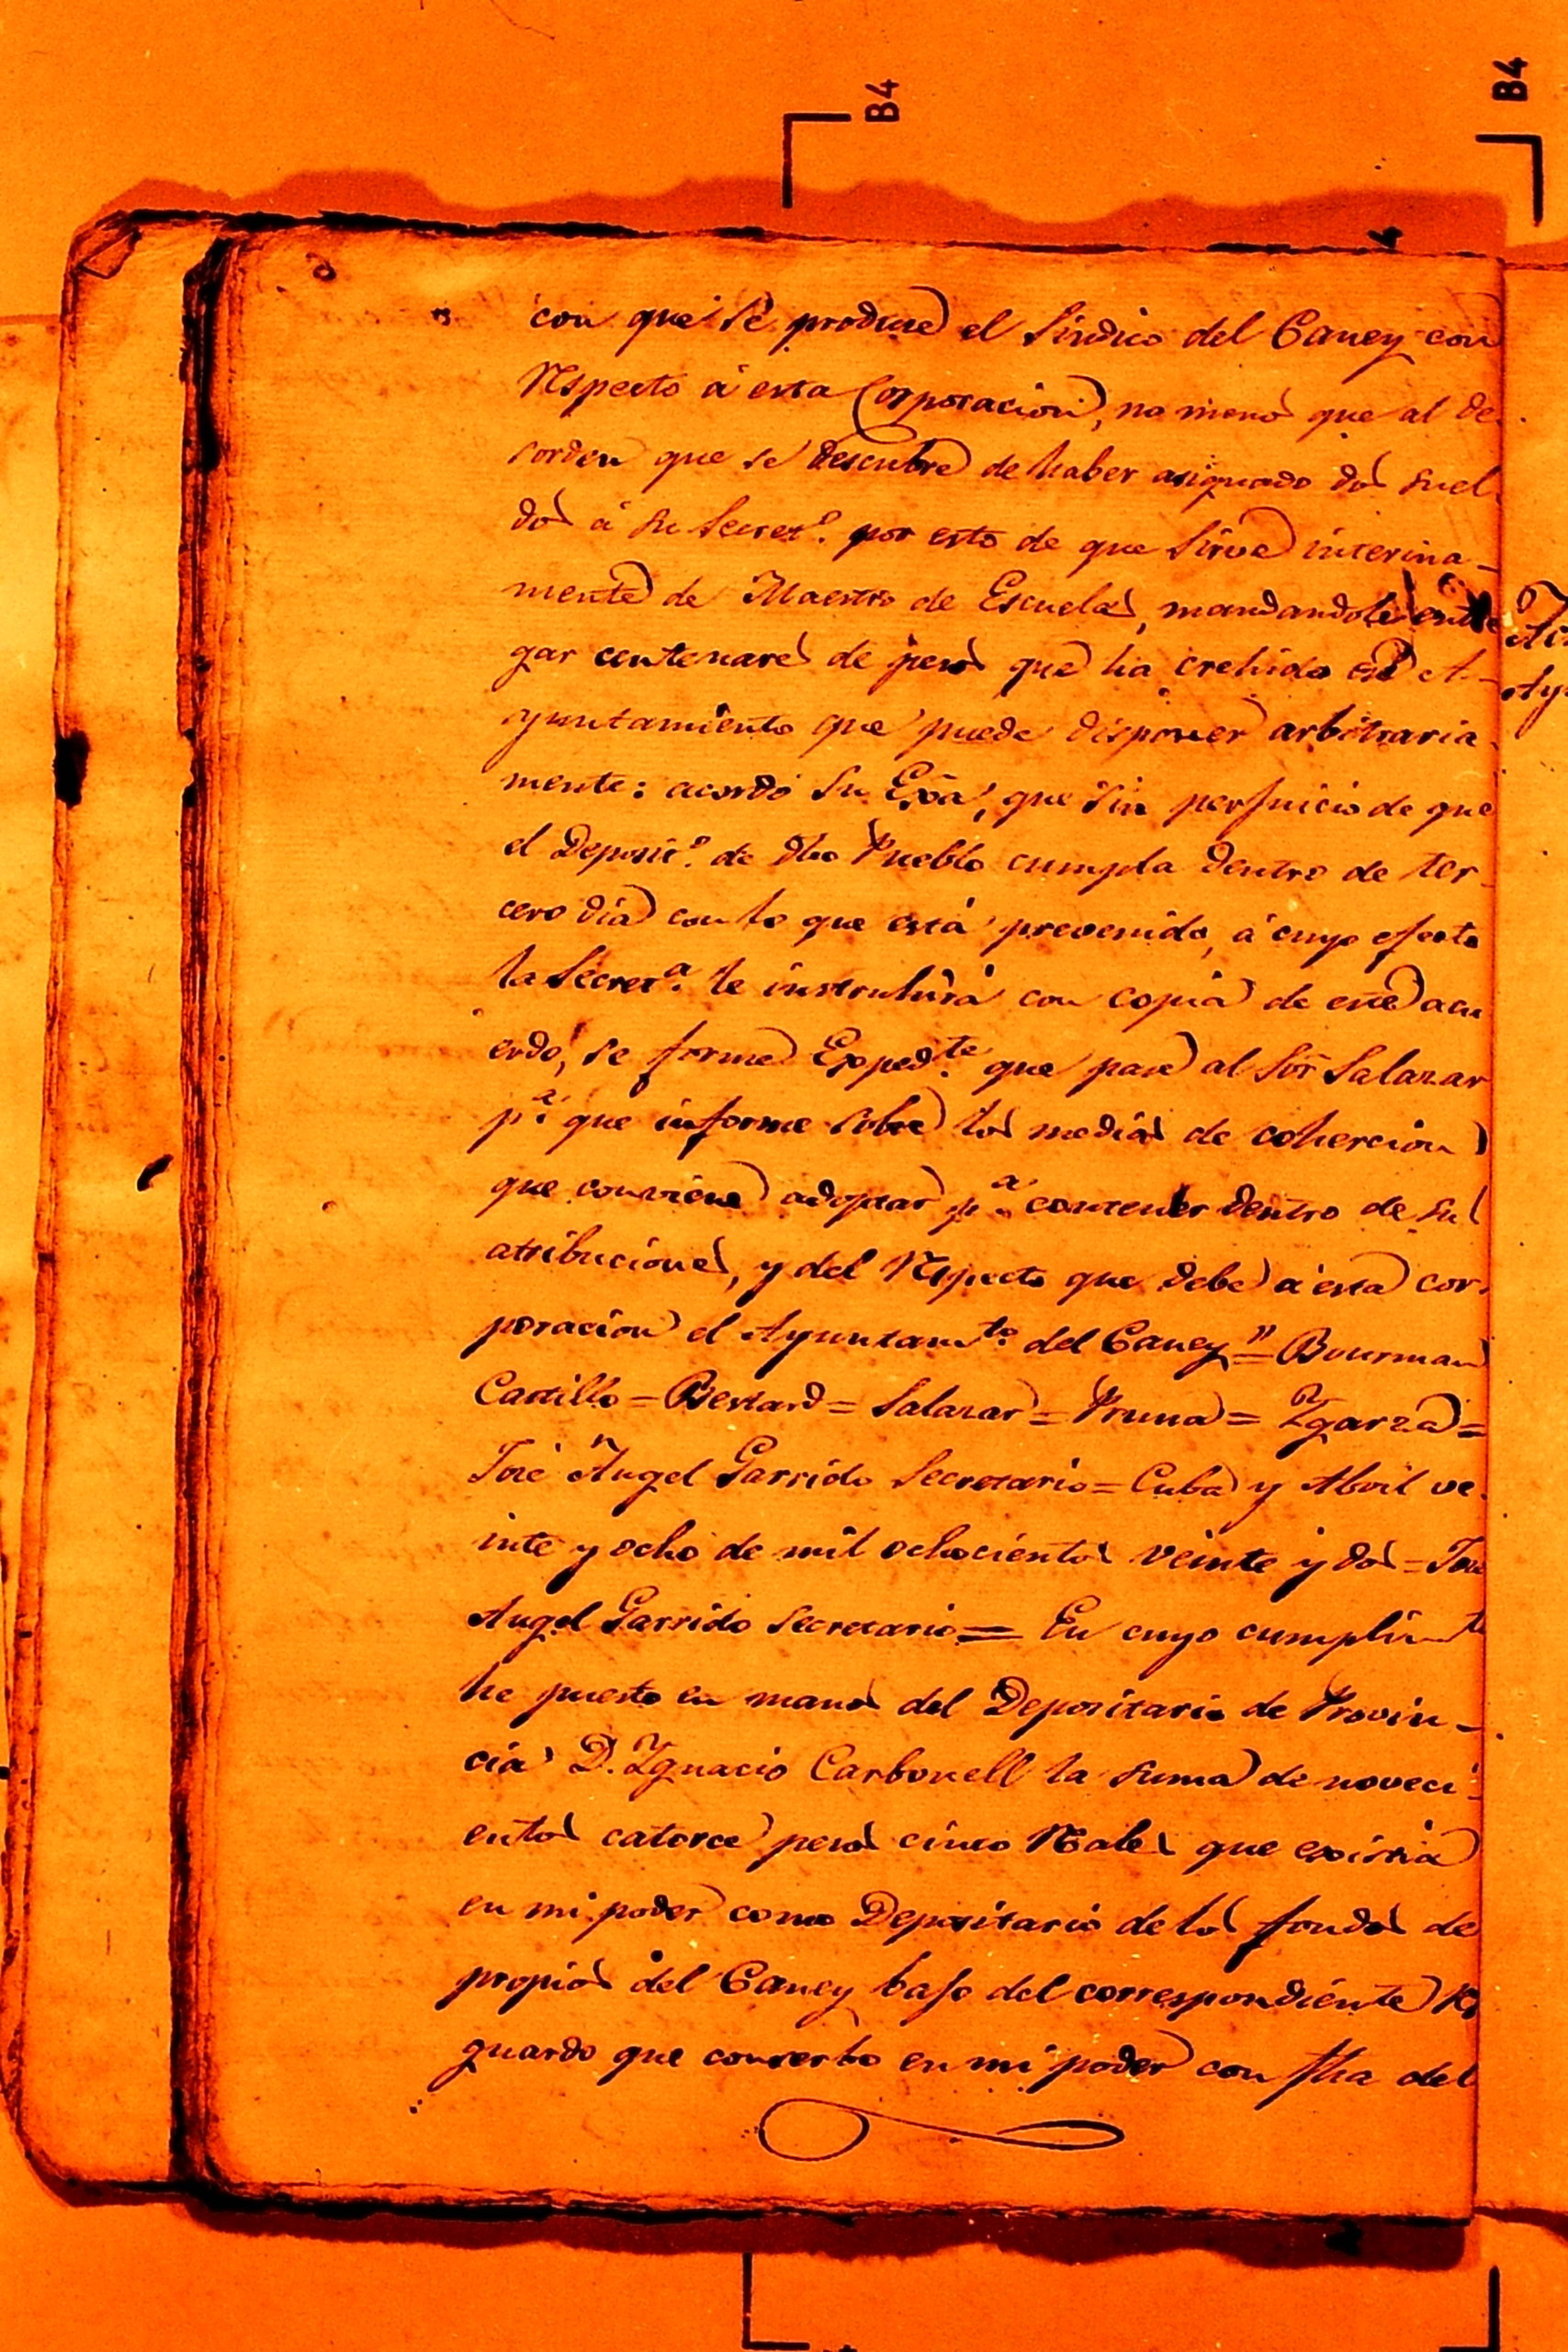 B4
B4
con que se produce el Sindico del Caney con
respecto á esta Corporacion, no menos que al de
sorden que se descubre de haber asignado dos suel
dos á su Secret.º por esto de que sirve interina-
mente de Maestro de Escuelas, mandandole entre
gar centenares de pesos que ha crehido ese A-
yuntamiento que puede disponer arbitraria
mente: acordó Su Exâ, que sin perjuicio de que
el Deposit.º de dho Pueblo cumpla dentro de ter-
cero dia con lo que está prevenido, á cuyo efecto
la Secret.ª le instruhirá con copia de este acu
erdo, se forme Exped.te que pase al Sõr Salazar
p.ª que informe sobre los medios de cohercion
que conviene adoptar p.ª contener dentro de sus
atribuciones, y del respecto que debe á esta cor-
poracion el Ayuntam.to del Caney" = Bourman
Castillo = Bestard = Salazar = Pruna = Ygarza =
José Angel Garrido Secretario = Cuba y Abril ve-
inte y ocho de mil ochocientos veinte y dos = José
Angel Garrido Secretario = En cuyo cumplimto
he puesto en manos del Depositario de Provin-
cia D. Ygnacio Carbonell la suma de noveci-
entos catorce pesos cinco reales que existia
en mi poder como Depositario de los fondos de
propios del Caney bajo del correspondiente res
guardo que conserbo en mi poder con fha del